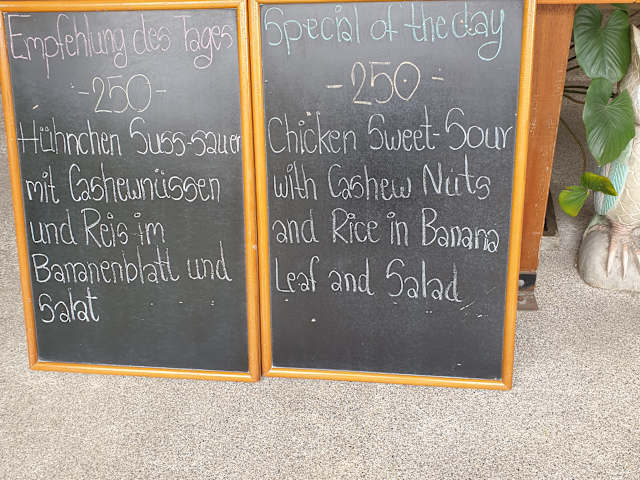 Empfehlung des Tages
-250-
Hühnchen Süss-sauer
mit Cashewnüssen
und Reis im
Bananenblatt und
Salat
Special of the day
-250-
Chicken Sweet-Sour
with Cashew Nuts
and Rice in Banana
Leaf and Salad